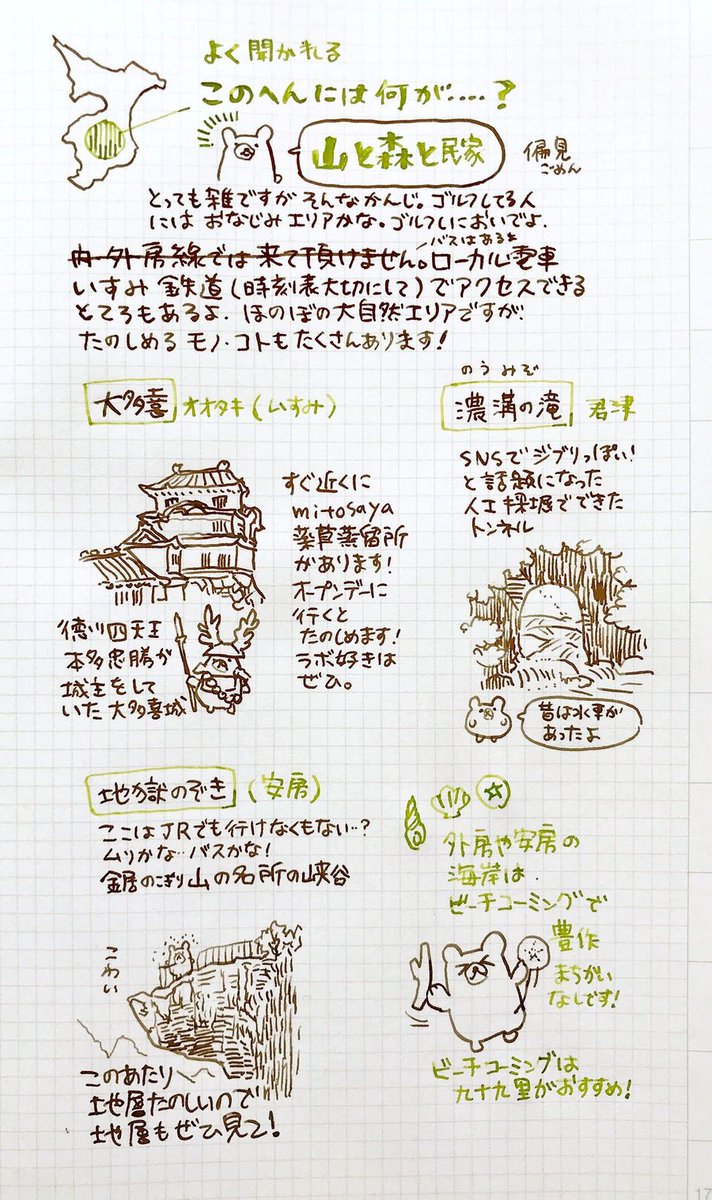 よく聞かれる
このへんには何が・・・・?
山と森と民家
偏見
ごめん
とっても雑ですが そんなかんじ。ゴルフしてる人
には おなじみエリアかな。ゴルフしにおいでよ.
内・外房線では来て頂けません。ローカル電車
バスはあるよ
いすみ鉄道(時刻表大切にして)でアクセスできる
ところもあるよ. ほのぼの大自然エリアですが
たのしめる モノ・コトもたくさんあります!
大多喜 オオタキ(いすみ)
すぐ近くに
mitosaya
薬草蒸留所
があります!
オープンデーに
行くと
たのしめます!
ラボ好きは
ぜひ。
徳川四天王
本多忠勝が
城主をして
いた 大多喜城
のうみぞ
濃溝の滝 君津
SNSでジブリっぽい!
と話題になった
人工採掘でできた
トンネル
昔は水車が
あったよ
地獄のぞき (安房)
ここはJRでも行けなくもない…?
ムリかな…バスかな!
鋸のこぎり山の名所の峡谷
こわい
このあたり
地層たのしいので
地層もぜひ見て!
外房や安房の
海岸は.
ビーチコーミングで
豊作
まちがい
なしです!
ビーチコーミングは
九十九里がおすすめ!
17